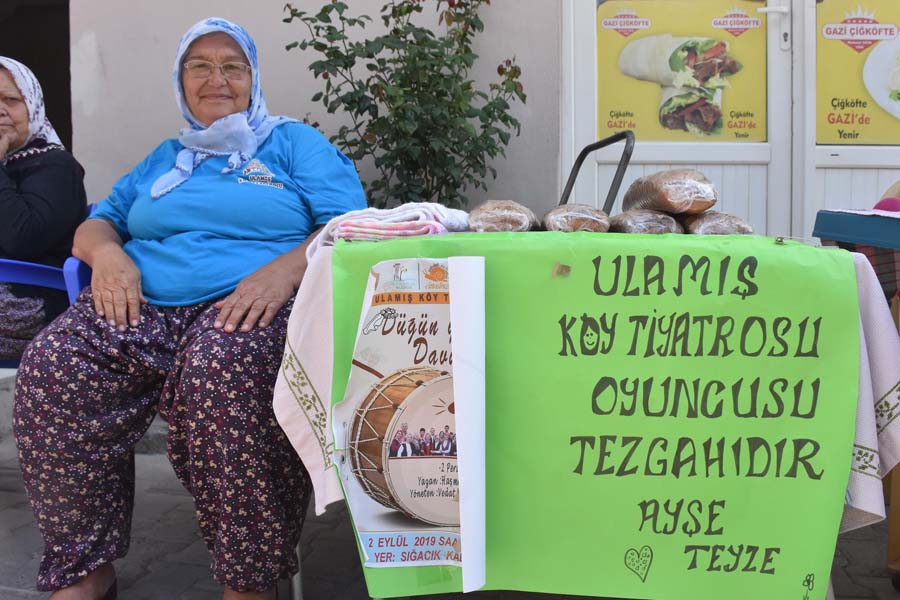 GAZİ ÇİĞKÖFTE
GAZİ ÇİĞKÖFTE
Çiğköfte
GAZİ'de
Yenir
Çiğköfte
GAZİ'de
Yenir
GAZİ ÇİĞKÖFTE
Çiğköfte
GAZİ'de
Yenir
ULAMIŞ
ULAMIŞ KÖY T
Düğün
Dav
2 Per
Yazan :Haşm
Yöneten :Vedat
2 EYLÜL 2019 SAA
YER: SIĞACIK KA
ULAMIŞ
KÖY TİYATROSU
OYUNCUSU
TEZGAHIDIR
AYŞE
TEYZE